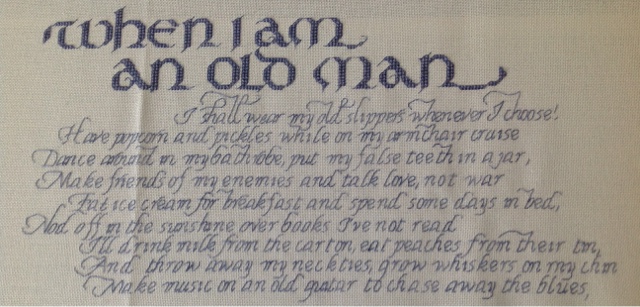 When I am
an old man
I shall wear my old slippers whenever I choose!
Have popcorn and pickles while on my armchair cruise
Dance around in my bathrobe, put my false teeth in a jar,
Make friends of my enemies and talk love, not war
Eat ice cream for breakfast and spend some days in bed,
Nod off in the sunshine over books I've not read
I'll drink milk from the carton, eat peaches from their tin,
And throw away my neckties, grow whiskers on my chin
Make music on an old guitar to chase away the blues,